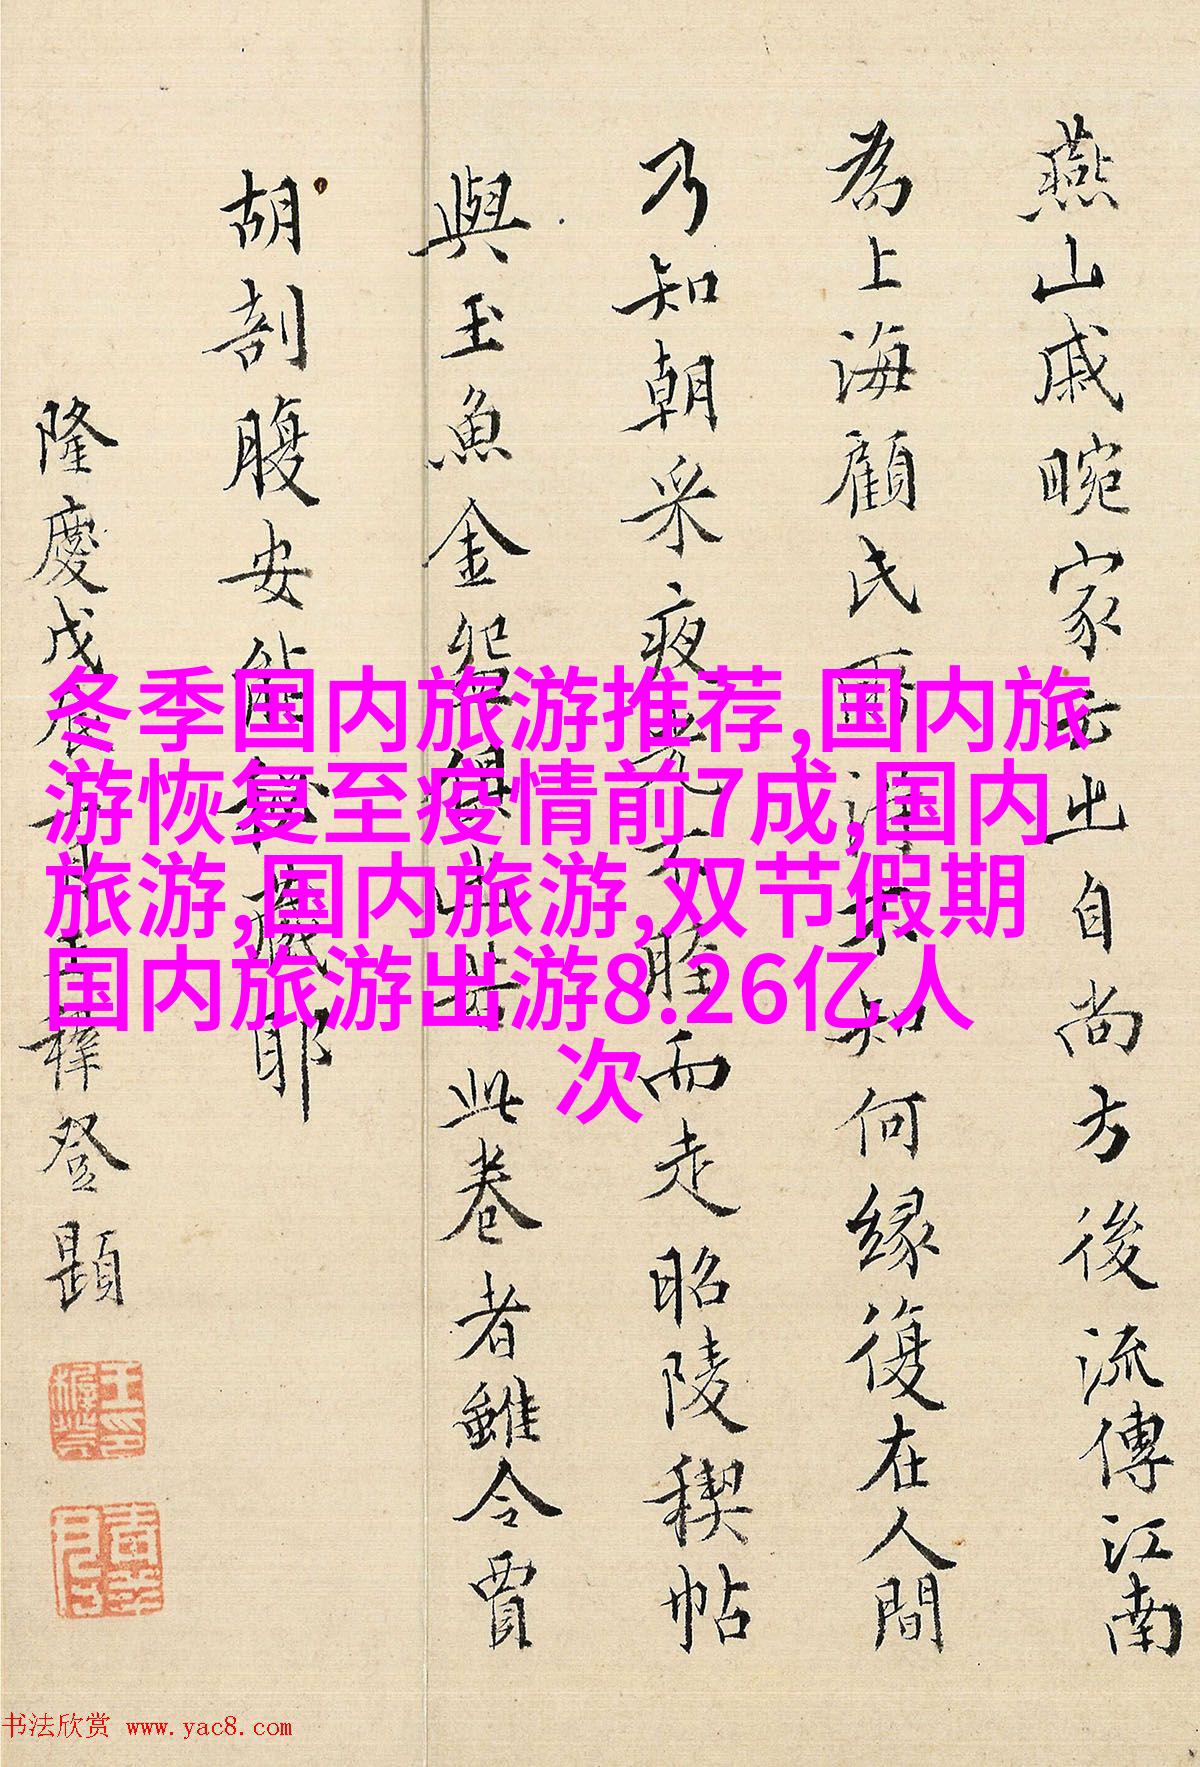 燕山戚畹家出自尚方後流傳江南
為上海顧氏不知何緣復在人間
乃知朝采夜光不脛而走昭陵稧帖
與玉魚金盌俱出若此卷者雖令賈
胡剖腹安能秘藏耶
隆慶戊辰王穉登題
冬季国内旅游推荐,国内旅
游恢复至疫情前7成,国内
旅游,国内旅游,双节假期
国内旅游出游8.26亿人
次
书法欣赏 www.yac8.com